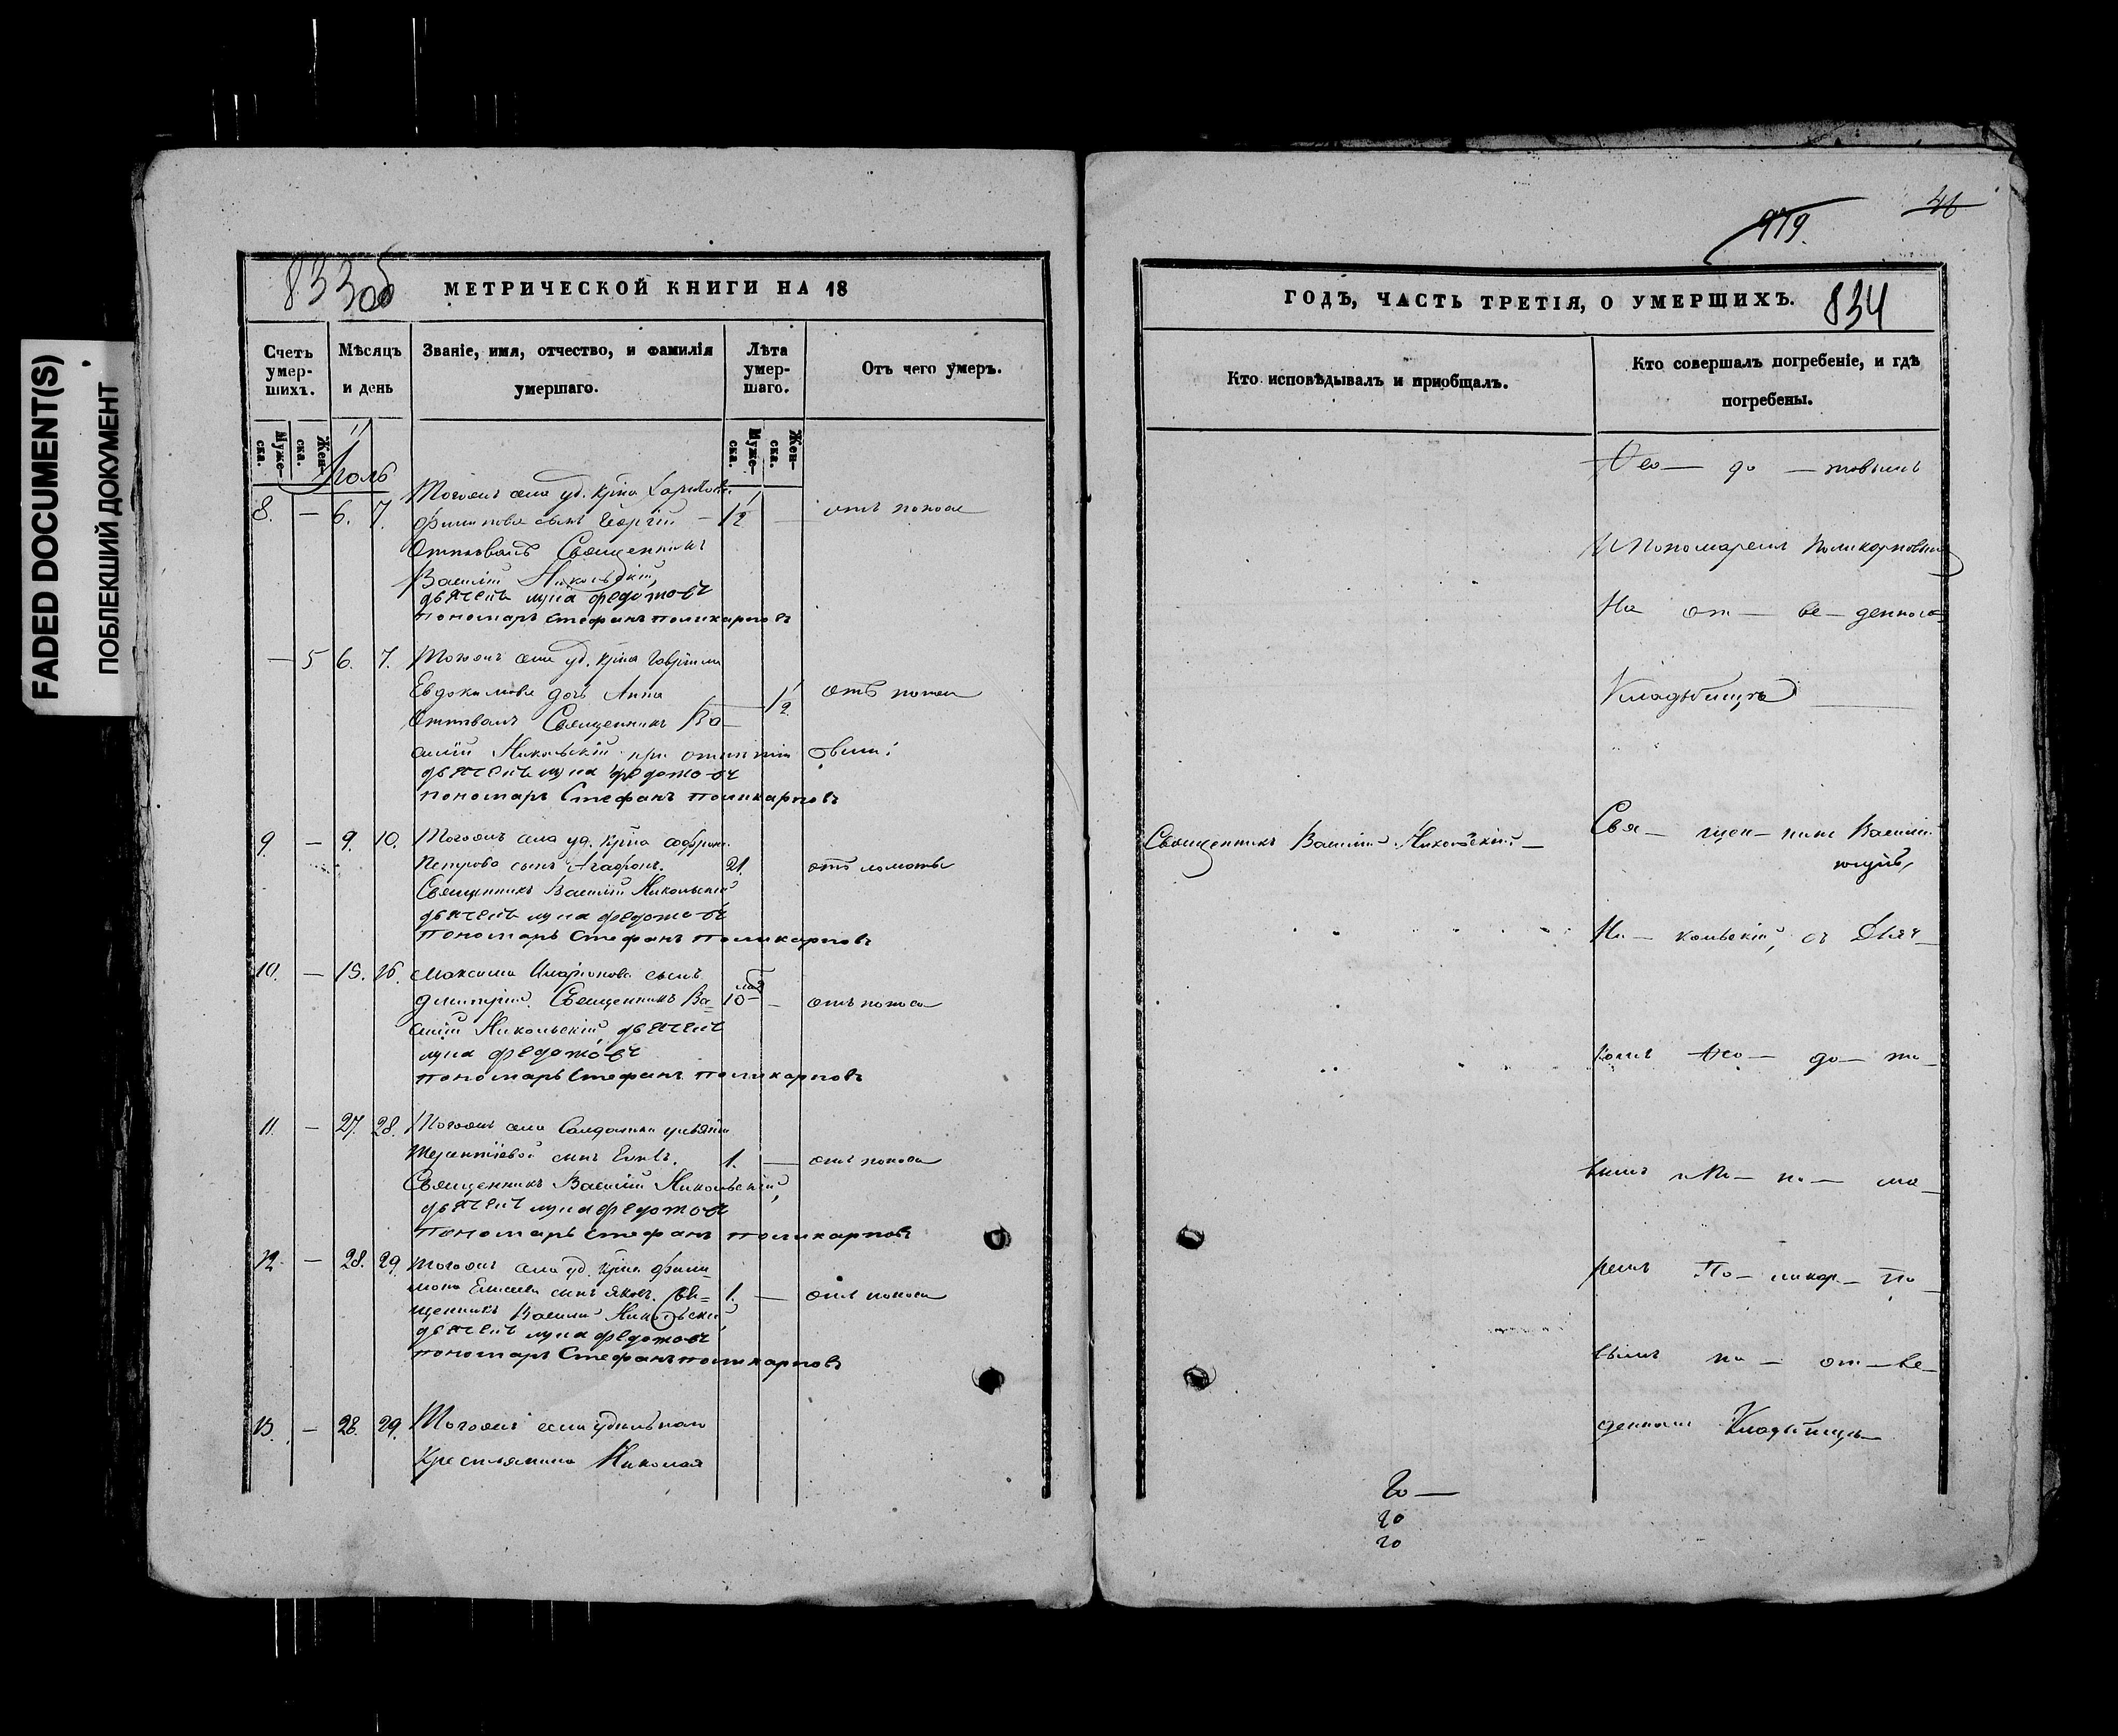 FADED DOCUMENT(S)
ПОБЛЕКШИЙ ДОКУМЕНТ
833 об
МЕТРИЧЕСКОЙ КНИГИ НА 18
Счетъ умер-шихъ.
Мѣсяцъ и день
Званіе, имя, отчество, и фамилія умершаго.
Лѣта умер-шаго.
Отъ чего умеръ.
Муже-ска.
Жен-ска.
Муже-ска.
Жен-ска.
Іюль
8. — 6. 7. Тогожъ села уд. кр҃на
Филипова сынъ Георгій — 1/2 — отъ поноса
Отпѣвалъ Священникъ
Василій Никольскій,
дьячекъ лука федотовъ
пономарь стефанъ поликарповъ
— 5 6. 7. Тогожъ села уд. кр҃на Гавріила
Евдокимова дочь Анна 1/2 отъ поноса
Отпѣвалъ Священникъ Ва-
силій Никольскій при
дьячекъ лука федотовъ
пономарь Стефанъ поликарповъ
9 — 9. 10. Тогожъ села уд. кр҃на
Петрова сынъ Агафонъ. 21. отъ ломоты
Священникъ Василій Никольскій
дьячекъ лука федотовъ
пономарь стефанъ поликарповъ
10. — 15. 16. Максима Иларіонова сынъ
Димитрій. Священникъ Ва- 10 — отъ поноса
силій Никольскій дьячекъ
лука федотовъ
пономарь Стефанъ поликарповъ
11. — 27. 28. Тогожъ села Солдатки
Терентіевой сынъ 1. — отъ поноса
Священникъ Василій Никольскій,
дьячекъ лука федотовъ
пономарь стефанъ поликарповъ
12 — 28. 29. Тогожъ села уд. кр҃на Фили-
мона Елисеева сынъ Яковъ. Свя- 1. — отъ поноса
щенникъ Василій Никольскій,
дьячекъ лука федотовъ
пономарь Стефанъ поликарповъ
13. — 28. 29. Тогожъ села удѣльнаго
Крестьянина Николая
919.
46
ГОДЪ, ЧАСТЬ ТРЕТІЯ, О УМЕРШИХЪ.
834
Кто исповѣдывалъ и пріобщалъ.
Кто совершалъ погребеніе, и гдѣ погребены.
Ѳео — до — товымъ
и Пономаремъ Поликарповымъ
На от — ве — денномъ
Кладбищѣ
Священникъ Василій Никольскій —
Свя — щен — никъ Василій
Ни — кольскій, съ Дьяч —
комъ Ѳео — до — то —
вымъ и По — но — ма —
ремъ По — ликар — по —
вымъ на — от — ве —
денномъ Кладбищѣ —
20 —
20
20